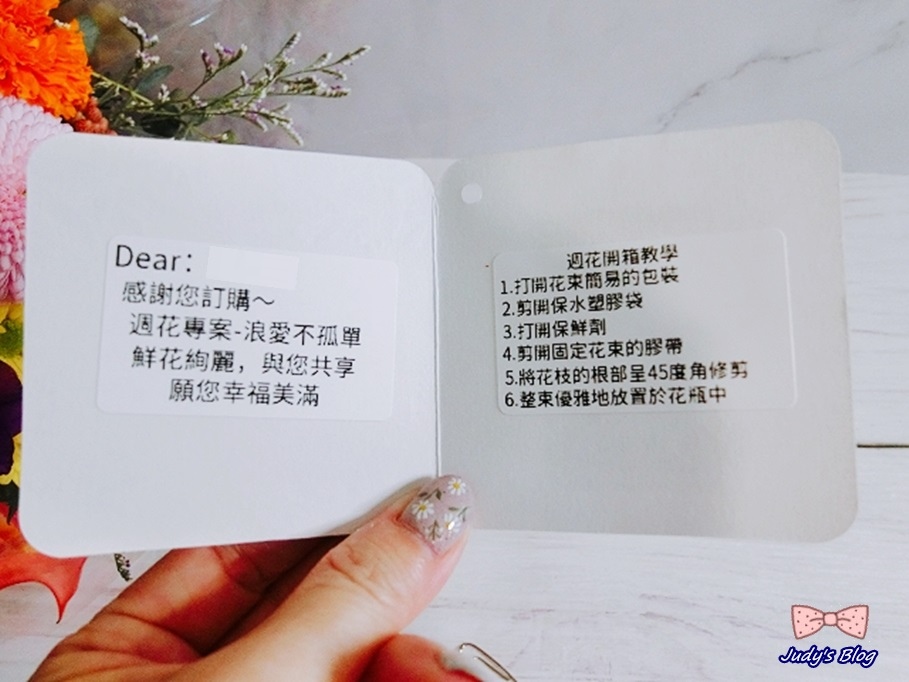 Dear：
感謝您訂購～
週花專案-浪愛不孤單
鮮花絢麗，與您共享
願您幸福美滿
週花開箱教學
1.打開花束簡易的包裝
2.剪開保水塑膠袋
3.打開保鮮劑
4.剪開固定花束的膠帶
5.將花枝的根部呈45度角修剪
6.整束優雅地放置於花瓶中
Judy's Blog